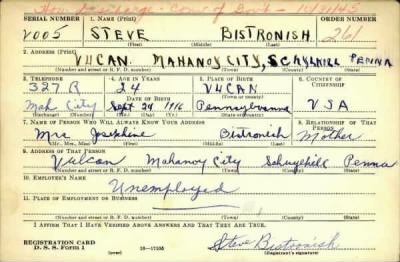 Hon discharge - Conv of Govt - 10/31/45
SERIAL NUMBER 1. NAME (Print) ORDER NUMBER
V005 STEVE BISTRONISH 261
(First) (Middle) (Last)
2. ADDRESS (Print)
VULCAN MAHANOY CITY, SCHYLKILL PENNA
(Number and street or R. F. D. number) (Town) (County) (State)
3. TELEPHONE 4. AGE IN YEARS 5. PLACE OF BIRTH 6. COUNTRY OF CITIZENSHIP
327 R 24 VULCAN
DATE OF BIRTH (Town or county)
Mah City Sept 29 1916 Pennsylvania USA
(Exchange) (Number) (Mo.) (Day) (Yr.) (State or country)
7. NAME OF PERSON WHO WILL ALWAYS KNOW YOUR ADDRESS 8. RELATIONSHIP OF THAT PERSON
Mrs Josephine Bistronish Mother
(Mr., Mrs., Miss) (First) (Middle) (Last)
9. ADDRESS OF THAT PERSON
Vulcan Mahanoy City Schuylkill Penna
(Number and street or R. F. D. number) (Town) (County) (State)
10. EMPLOYER'S NAME
Unemployed
11. PLACE OF EMPLOYMENT OR BUSINESS
(Number and street or R. F. D. number) (Town) (County) (State)
I AFFIRM THAT I HAVE VERIFIED ABOVE ANSWERS AND THAT THEY ARE TRUE.
REGISTRATION CARD
D. S. S. Form 1 16-17105 Steve Bistronish
(Registrant's signature)